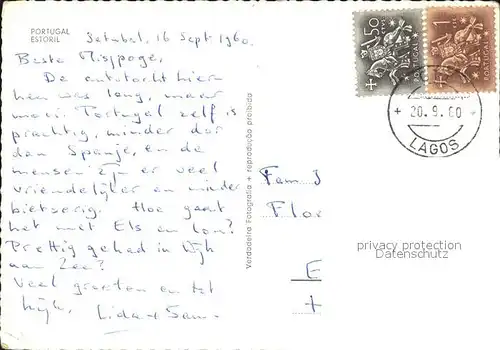 PORTUGAL
ESTORIL
Setubal, 16 Sept 1960.
Beste Mispoge,
De autotocht hier
heen was lang, maar
mooi. Portugal zelf is
prachtig, minder dor
dan Spanje, en de
mensen zijn er veel
vriendelijker en minder
bietserig. Hoe gaat
het met Els en Lom?
Prettig gehad in Wijk
aan Zee?
Veel groeten en tot
kijk, Lida + Sam.
Verdadeira Fotografia + reprodução proibida
$50
PORTUGAL
1
PORTUGAL
20.9.60
LAGOS
Fam J
Flor
E
privacy protection
Datenschutz